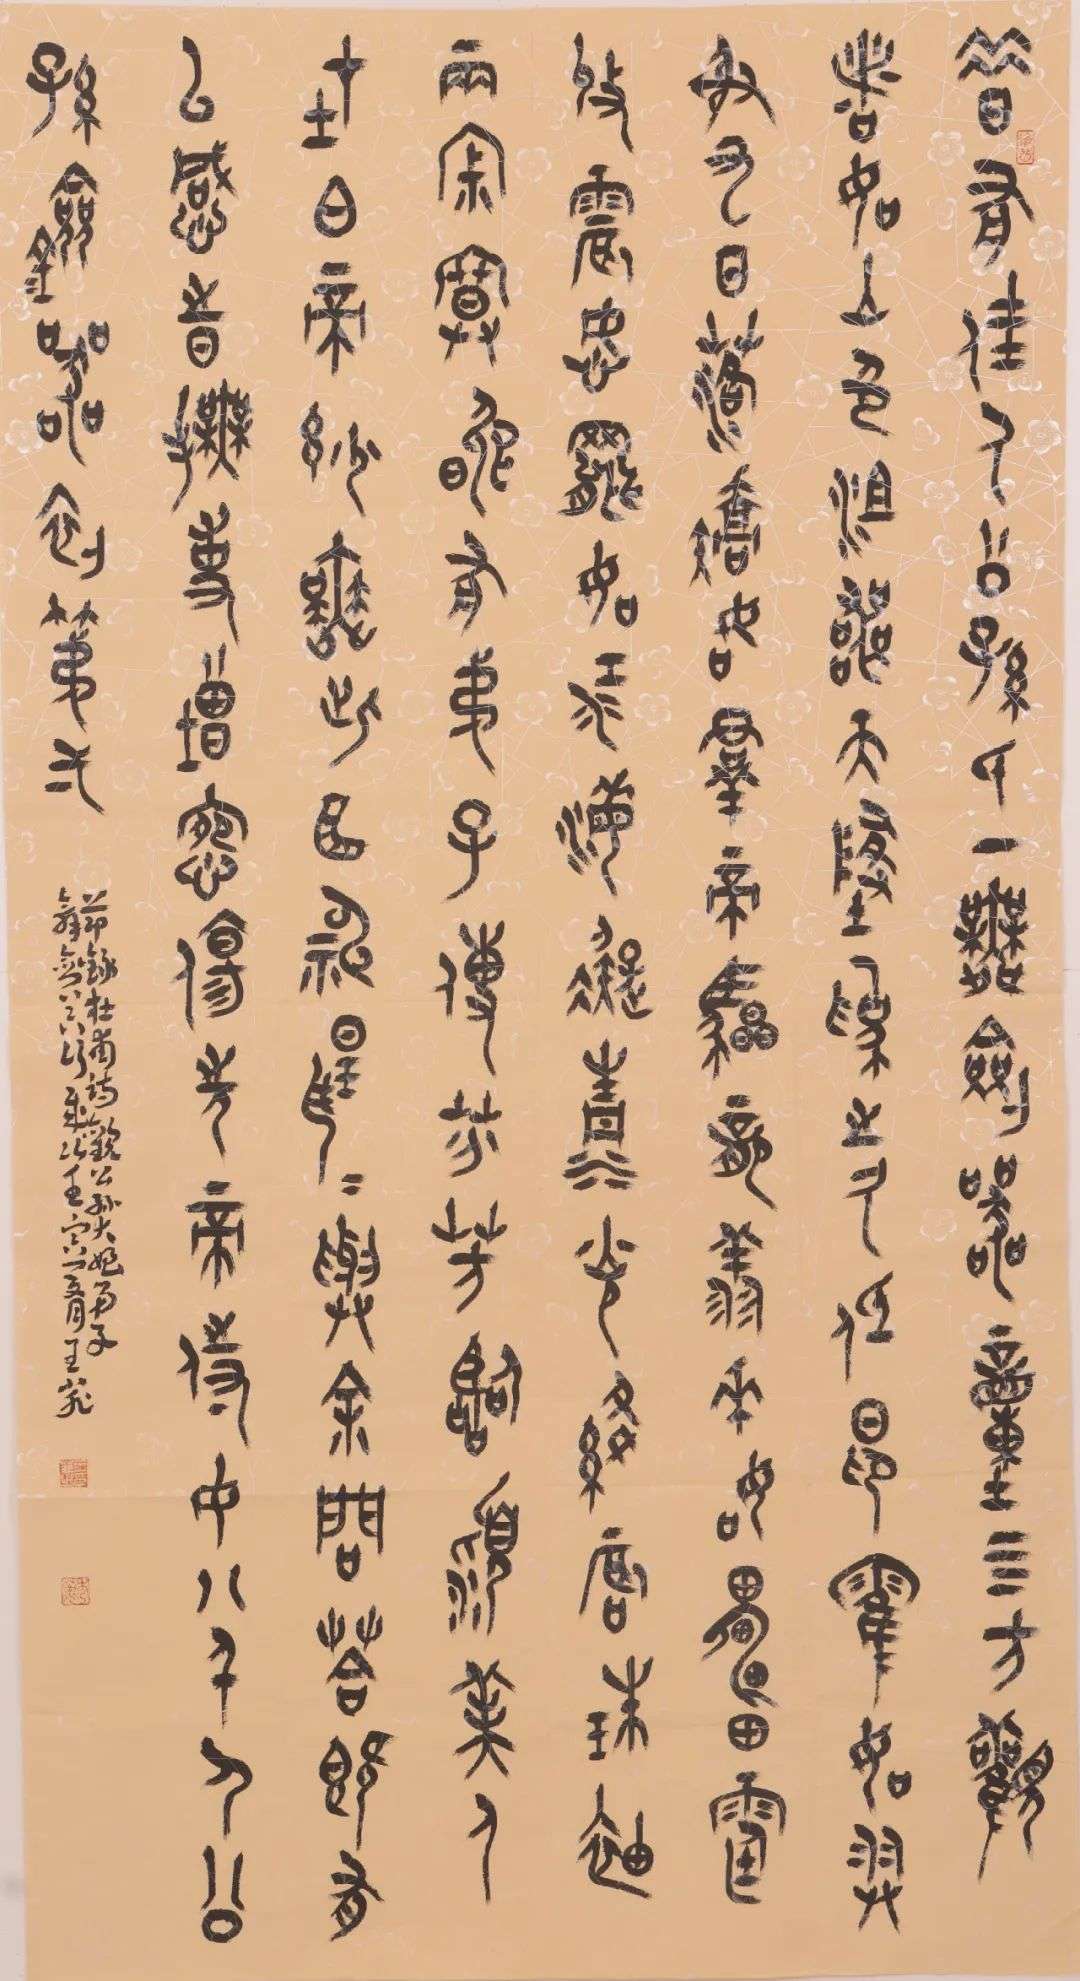 昔有佳人公孫氏一舞劍器動四方觀
者如山色沮喪天地為之久低昂㸌如羿
射九日落矯如群帝驂龍翔來如雷霆
收震怒罷如江海凝清光絳唇珠袖
兩寂寞晚有弟子傳芬芳臨潁美人
在白帝妙舞此曲神揚揚與余問答既有
以感時撫事增惋傷先帝侍女八千人公
孫劍器初第一
節錄杜甫詩觀公孫大娘弟子
舞劍器行歲次壬寅